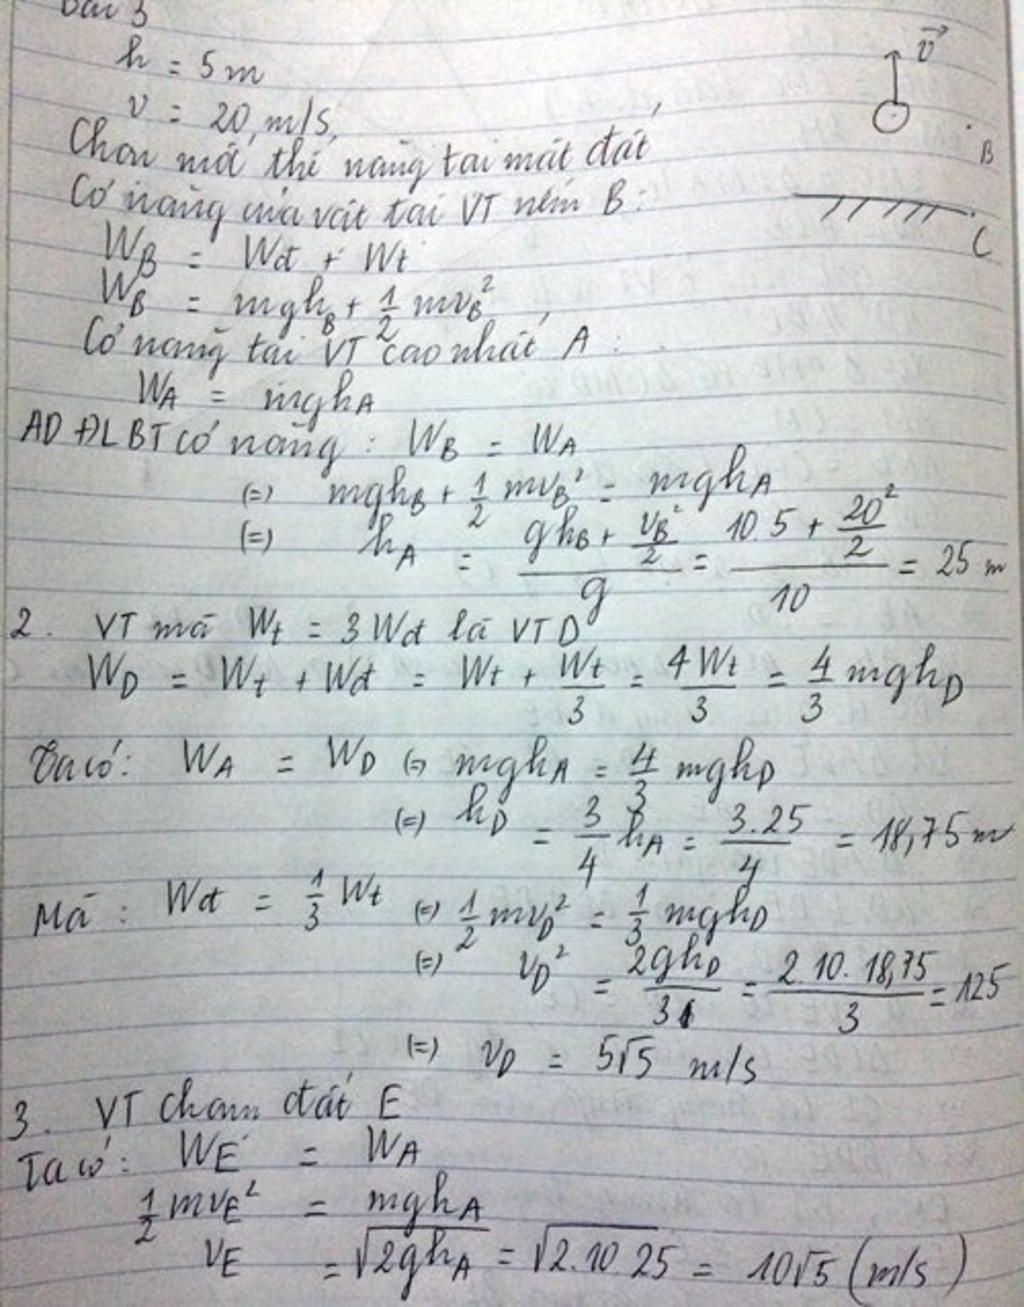 Bài 3
h = 5m
v = 20 m/s
v⃗
B
C
Chọn mốc thế năng tại mặt đất
Cơ năng của vật tại VT ném B :
WB = Wđ + Wt
WB = mghB + 1/2 mvB²
Cơ năng tại VT cao nhất A :
WA = mghA
AD ĐLBT cơ năng : WB = WA
(=) mghB + 1/2 mvB² = mghA
(=) hA = (ghB + vB²/2)/g = (10.5 + 20²/2)/10 = 25 m
2. VT mà Wt = 3Wđ là VT D
WD = Wt + Wđ = Wt + Wt/3 = 4Wt/3 = 4/3 mghD
Ta có : WA = WD (=) mghA = 4/3 mghD
(=) hD = 3/4 hA = 3.25/4 = 18,75 m
Mà : Wđ = 1/3 Wt (=) 1/2 mvD² = 1/3 mghD
(=) vD² = 2ghD/3 = 2.10.18,75/3 = 125
(=) vD = 5√5 m/s
3. VT chạm đất E
Ta có : WE = WA
1/2 mvE² = mghA
vE = √2ghA = √2.10.25 = 10√5 (m/s)